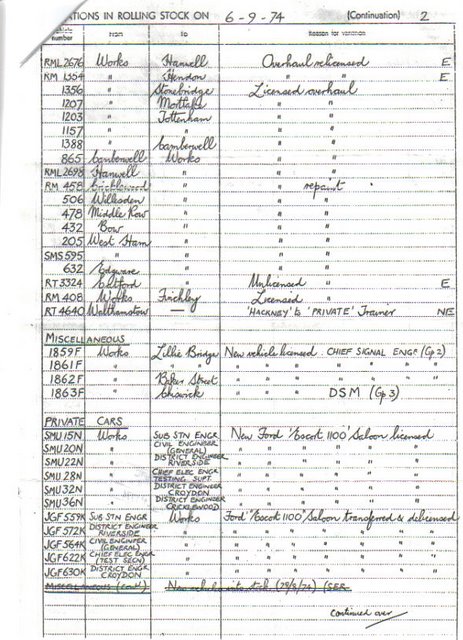 ATIONS IN ROLLING STOCK ON 6-9-74 (Continuation) 2
number From To Reason for variation
RML 2676 Works Hanwell Overhaul relicensed E
RM 1354 " Hendon " " E
1356 " Stonebridge Licensed overhaul
1207 " Mortlake " "
1203 " Tottenham " "
1157 " " " "
1388 " Camberwell " "
865 Camberwell Works " "
RML 2698 Hanwell " " "
RM 458 Cricklewood " " repaint
506 Willesden " " "
478 Middle Row " " "
432 Bow " " "
205 West Ham " " "
SMS 595 " " " "
632 Edgware " " "
RT 3324 Catford " Unlicensed " E
RM 408 Works Finchley Licensed "
RT 4640 Walthamstow — 'HACKNEY' to 'PRIVATE' Trainer NE
MISCELLANEOUS
1859F Works Lillie Bridge New vehicle licensed CHIEF SIGNAL ENGR (Gp 2)
1861F " " " " " " " "
1862F " Baker Street " " " " " "
1863F " Chiswick " " " DSM (Gp 3)
PRIVATE CARS
SMU 15N Works SUB STN ENGR New Ford 'Escort 1100' Saloon licensed
SMU 20N " CIVIL ENGINEER (GENERAL) " " " " " "
SMU 22N " DISTRICT ENGINEER RIVERSIDE " " " " " "
SMU 28N " CHIEF ELEC ENGR TESTING SUPT " " " " " "
SMU 32N " DISTRICT ENGINEER CROYDON " " " " " "
SMU 36N " DISTRICT ENGINEER CRICKLEWOOD " " " " " "
JGF 559K SUB STN ENGR Works Ford 'Escort 1100' Saloon transferred & delicensed
JGF 572K DISTRICT ENGINEER RIVERSIDE " " " " " " "
JGF 564K CIVIL ENGINEER (GENERAL) " " " " " " "
JGF 622K CHIEF ELEC ENGR (TEST SECN) " " " " " " "
JGF 630K DISTRICT ENGR CROYDON " " " " " " "
MISCELLANEOUS (Cont'd) New vehicle into stock (29/8/74) (SER
Continued over